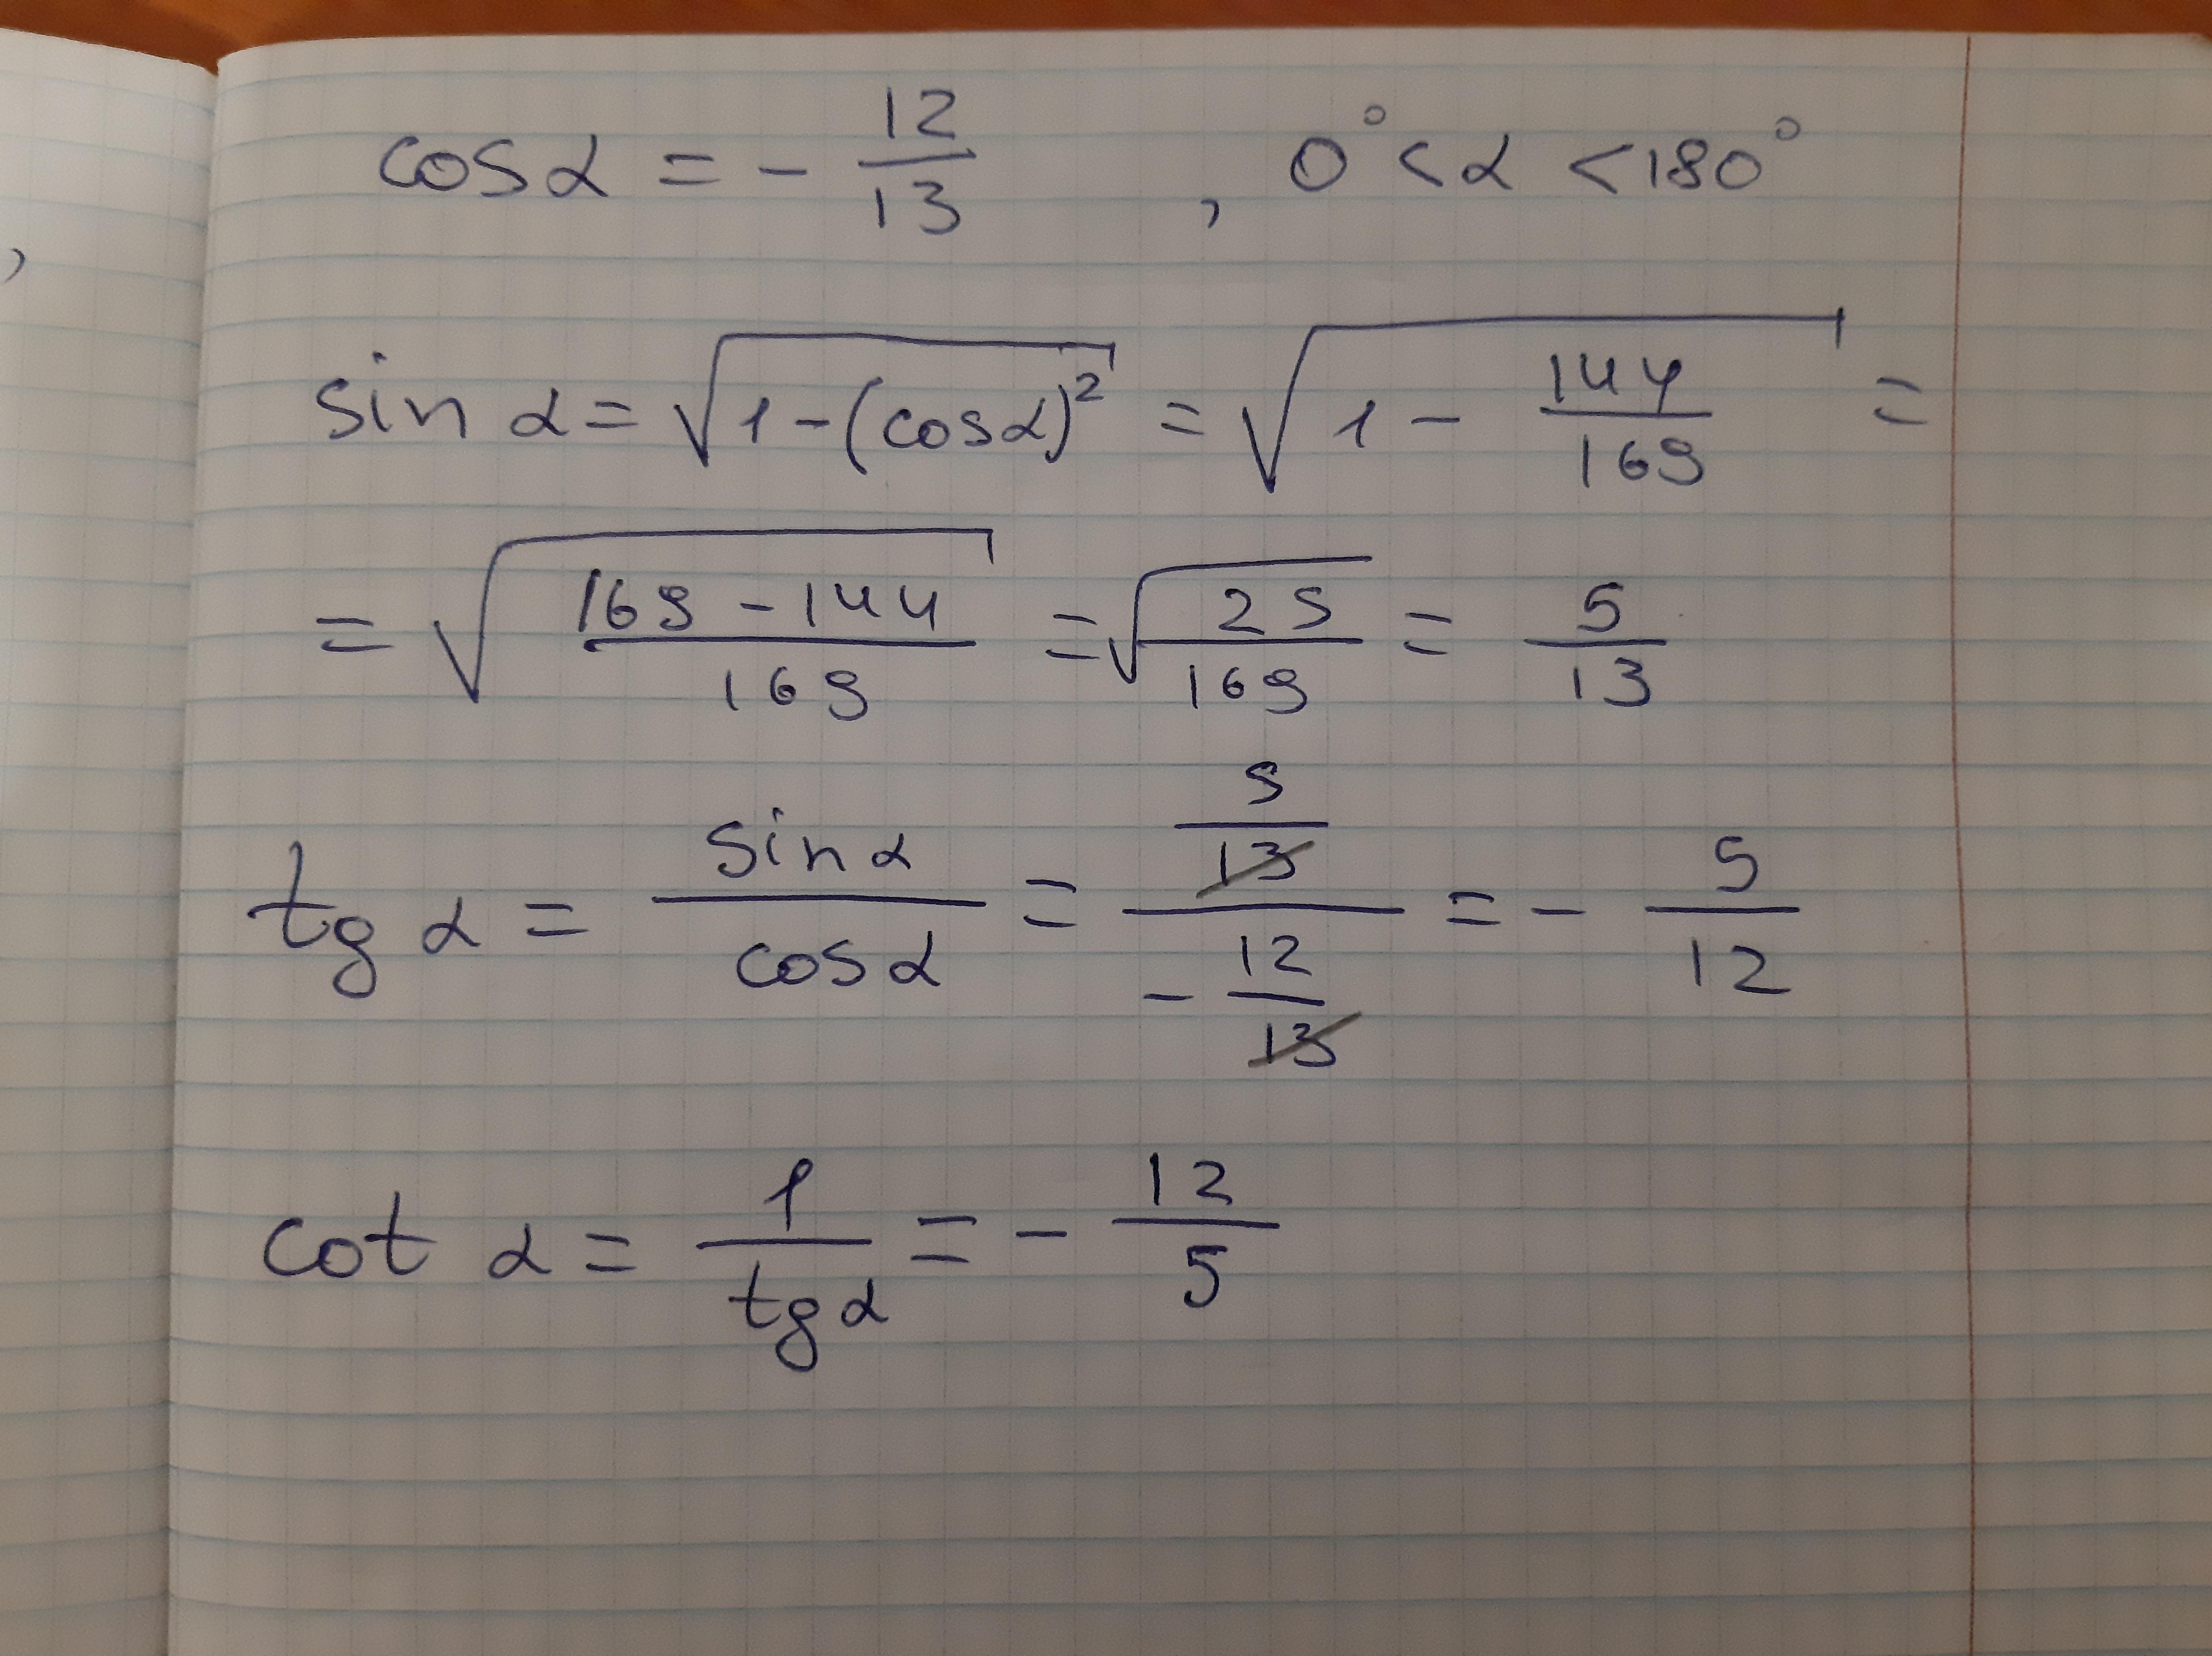 cos α = - 12/13 , 0° < α < 180°
sin α = √(1-(cos α)²) = √(1 - 144/169) =
= √((169 - 144)/169) = √(25/169) = 5/13
tg α = sin α/cos α = (5/13)/(- 12/13) = - 5/12
cot α = 1/tg α = - 12/5
,